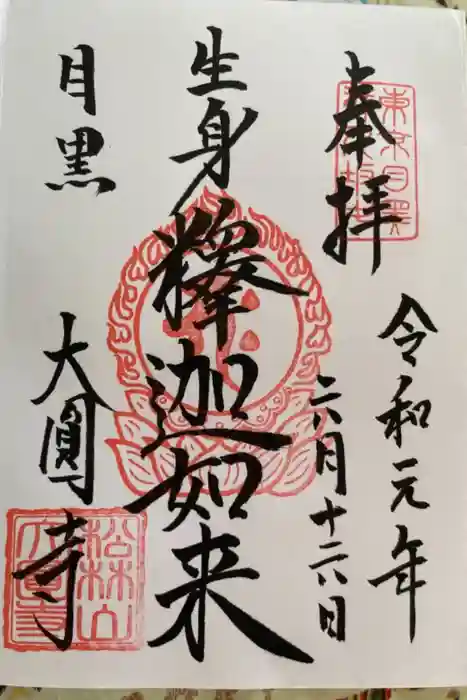 奉拝
令和元年
六月十六日
生身釋迦如来
目黒
大圓寺
松林山
大圓寺